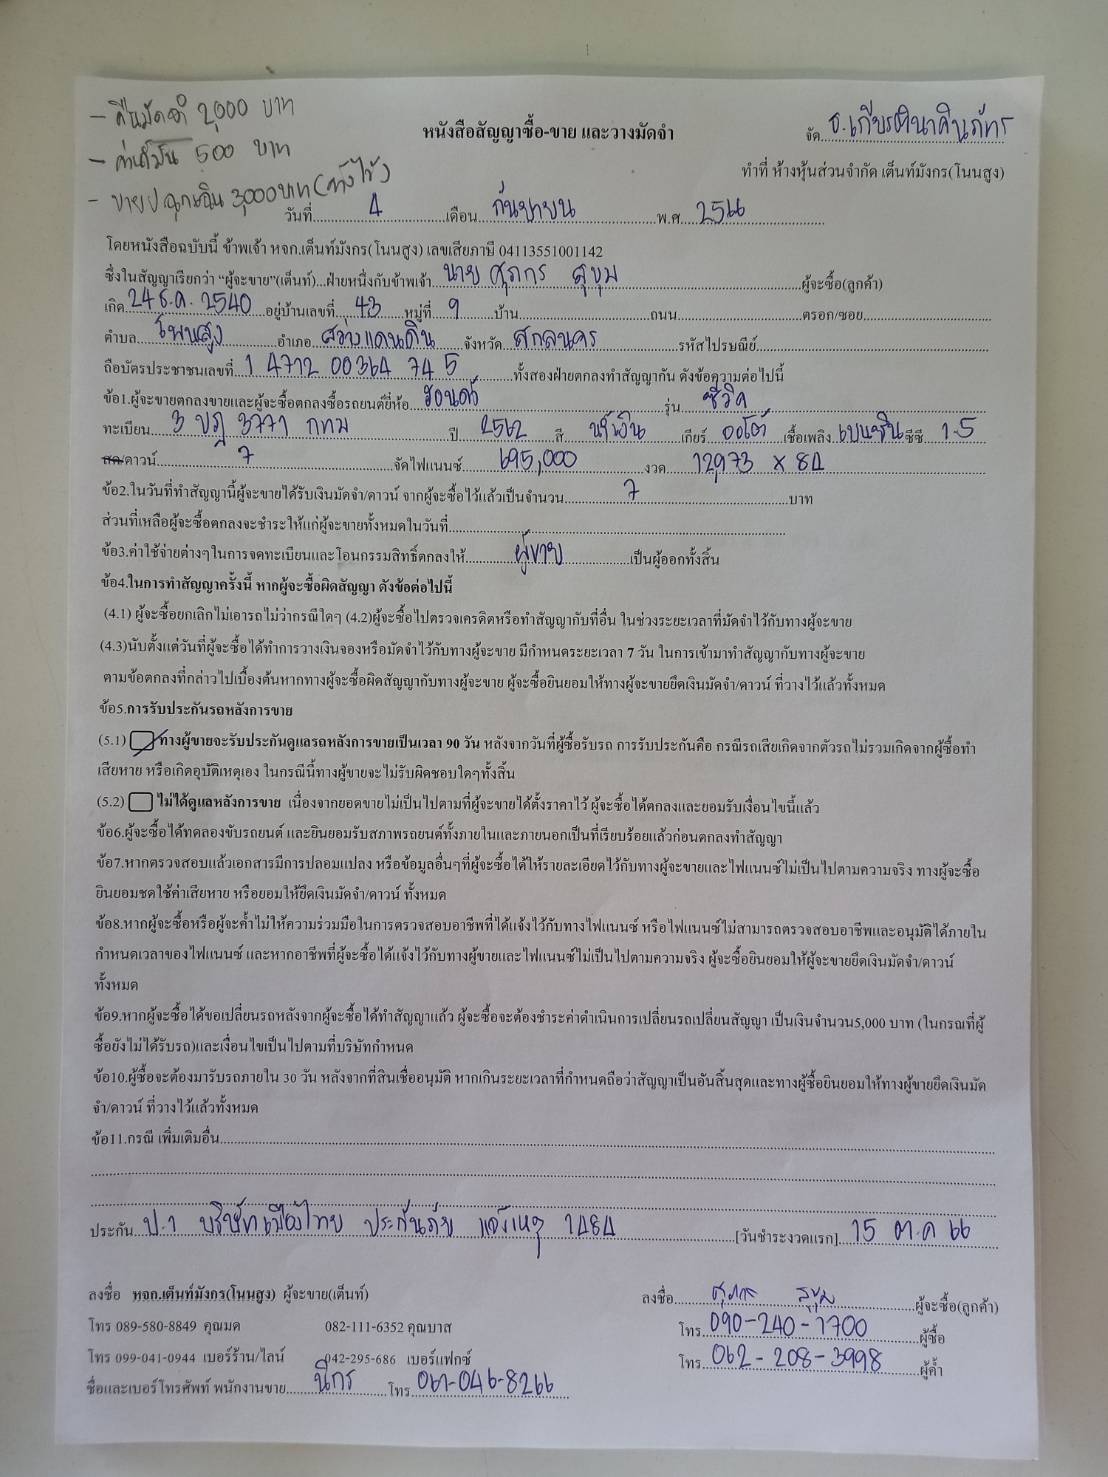 - คืนมัดจำ 2,000 บาท
- ค่าน้ำมัน 500 บาท
- ขายป ฉุกเฉิน 3,000 บาท (ทั้งไข้)
หนังสือสัญญาซื้อ-ขาย และวางมัดจำ
จัด ธ.เกียรตินาคินภัทร
ทำที่ ห้างหุ้นส่วนจำกัด เต็นท์มังกร(โนนสูง)
วันที่ 4 เดือน กันยายน พ.ศ 2566
โดยหนังสือฉบับนี้ ข้าพเจ้า หจก.เต็นท์มังกร(โนนสูง) เลขเสียภาษี 04113551001142
ซึ่งในสัญญาเรียกว่า "ผู้จะขาย"(เต็นท์)...ฝ่ายหนึ่งกับข้าพเจ้า นาย ศุภกร สุขุม ผู้จะซื้อ(ลูกค้า)
เกิด 24 ธ.ค. 2540 อยู่บ้านเลขที่ 43 หมู่ที่ 9 บ้าน ถนน ตรอก/ซอย
ตำบล โพนสูง อำเภอ สว่างแดนดิน จังหวัด สกลนคร รหัสไปรษณีย์
ถือบัตรประชาชนเลขที่ 1 4712 00364 74 5 ทั้งสองฝ่ายตกลงทำสัญญากัน ดังข้อความต่อไปนี้
ข้อ1.ผู้จะขายตกลงขายและผู้จะซื้อตกลงซื้อรถยนต์ยี่ห้อ ฮอนด้า รุ่น ซีวิค
ทะเบียน 3 ขฎ 3771 กทม ปี 2562 สี น้ำเงิน เกียร์ ออโต้ เชื้อเพลิง เบนซิน ซีซี 1.5
สด/ดาวน์ 7 จัดไฟแนนซ์ 695,000 งวด 12,973 x 84
ข้อ2.ในวันที่ทำสัญญานี้ผู้จะขายได้รับเงินมัดจำ/ดาวน์ จากผู้จะซื้อไว้แล้วเป็นจำนวน 7 บาท
ส่วนที่เหลือผู้จะซื้อตกลงจะชำระให้แก่ผู้จะขายทั้งหมดในวันที่
ข้อ3.ค่าใช้จ่ายต่างๆในการจดทะเบียนและโอนกรรมสิทธิ์ตกลงให้ ผู้ขาย เป็นผู้ออกทั้งสิ้น
ข้อ4.ในการทำสัญญาครั้งนี้ หากผู้จะซื้อผิดสัญญา ดังข้อต่อไปนี้
(4.1) ผู้จะซื้อยกเลิกไม่เอารถไม่ว่ากรณีใดๆ (4.2)ผู้จะซื้อไปตรวจเครดิตหรือทำสัญญากับที่อื่น ในช่วงระยะเวลาที่มัดจำไว้กับทางผู้จะขาย
(4.3)นับตั้งแต่วันที่ผู้จะซื้อได้ทำการวางเงินจองหรือมัดจำไว้กับทางผู้จะขาย มีกำหนดระยะเวลา 7 วัน ในการเข้ามาทำสัญญากับทางผู้จะขาย
ตามข้อตกลงที่กล่าวไปเบื้องต้นหากทางผู้จะซื้อผิดสัญญากับทางผู้จะขาย ผู้จะซื้อยินยอมให้ทางผู้จะขายยึดเงินมัดจำ/ดาวน์ ที่วางไว้แล้วทั้งหมด
ข้อ5.การรับประกันรถหลังการขาย
(5.1) ทางผู้ขายจะรับประกันดูแลรถหลังการขายเป็นเวลา 90 วัน หลังจากวันที่ผู้ซื้อรับรถ การรับประกันคือ กรณีรถเสียเกิดจากตัวรถไม่รวมเกิดจากผู้ซื้อทำ
เสียหาย หรือเกิดอุบัติเหตุเอง ในกรณีนี้ทางผู้ขายจะไม่รับผิดชอบใดๆทั้งสิ้น
(5.2) ไม่ได้ดูแลหลังการขาย เนื่องจากยอดขายไม่เป็นไปตามที่ผู้จะขายได้ตั้งราคาไว้ ผู้จะซื้อได้ตกลงและยอมรับเงื่อนไขนี้แล้ว
ข้อ6.ผู้จะซื้อได้ทดลองขับรถยนต์ และยินยอมรับสภาพรถยนต์ทั้งภายในและภายนอกเป็นที่เรียบร้อยแล้วก่อนตกลงทำสัญญา
ข้อ7.หากตรวจสอบแล้วเอกสารมีการปลอมแปลง หรือข้อมูลอื่นๆที่ผู้จะซื้อได้ให้รายละเอียดไว้กับทางผู้จะขายและไฟแนนซ์ไม่เป็นไปตามความจริง ทางผู้จะซื้อ
ยินยอมชดใช้ค่าเสียหาย หรือยอมให้ยึดเงินมัดจำ/ดาวน์ ทั้งหมด
ข้อ8.หากผู้จะซื้อหรือผู้จะค้ำไม่ให้ความร่วมมือในการตรวจสอบอาชีพที่ได้แจ้งไว้กับทางไฟแนนซ์ หรือไฟแนนซ์ไม่สามารถตรวจสอบอาชีพและอนุมัติได้ภายใน
กำหนดเวลาของไฟแนนซ์ และหากอาชีพที่ผู้จะซื้อได้แจ้งไว้กับทางผู้ขายและไฟแนนซ์ไม่เป็นไปตามความจริง ผู้จะซื้อยินยอมให้ผู้จะขายยึดเงินมัดจำ/ดาวน์
ทั้งหมด
ข้อ9.หากผู้จะซื้อได้ขอเปลี่ยนรถหลังจากผู้จะซื้อได้ทำสัญญาแล้ว ผู้จะซื้อจะต้องชำระค่าดำเนินการเปลี่ยนรถเปลี่ยนสัญญา เป็นเงินจำนวน5,000 บาท (ในกรณที่ผู้
ซื้อยังไม่ได้รับรถ)และเงื่อนไขเป็นไปตามที่บริษัทกำหนด
ข้อ10.ผู้ซื้อจะต้องมารับรถภายใน 30 วัน หลังจากที่สินเชื่ออนุมัติ หากเกินระยะเวลาที่กำหนดถือว่าสัญญาเป็นอันสิ้นสุดและทางผู้ซื้อยินยอมให้ทางผู้ขายยึดเงินมัด
จำ/ดาวน์ ที่วางไว้แล้วทั้งหมด
ข้อ11.กรณี เพิ่มเติมอื่น
ประกัน ป.1 บริษัทเมืองไทย ประกันภัย แจ้งเหตุ 1484 [วันชำระงวดแรก] 15 ต.ค 66
ลงชื่อ หจก.เต็นท์มังกร(โนนสูง) ผู้จะขาย(เต็นท์)
ลงชื่อ ศุภกร สุขุม ผู้จะซื้อ(ลูกค้า)
โทร 089-580-8849 คุณมด 082-111-6352 คุณบาส
โทร 090-240-1700 ผู้ซื้อ
โทร 099-041-0944 เบอร์ร้าน/ไลน์ 042-295-686 เบอร์แฟกซ์
โทร 062-208-3998 ผู้ค้ำ
ชื่อและเบอร์โทรศัพท์ พนักงานขาย นีกร โทร 061-046-8266